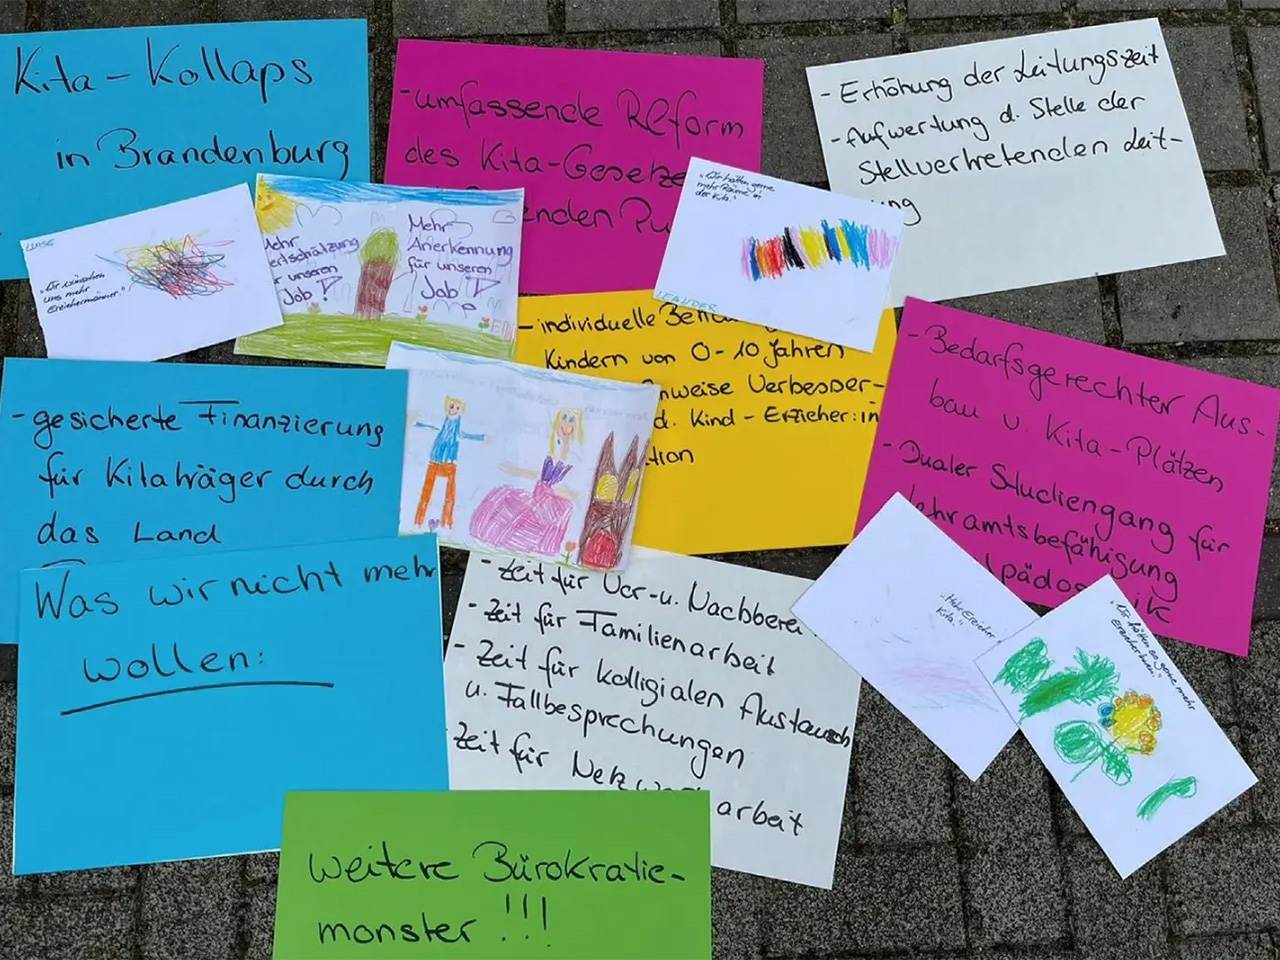 Kita - Kollaps
in Brandenburg
- umfassende Reform
des Kita-Gesetze
enden
- Erhöhung der Leitungszeit
- Aufwertung d. Stelle der
Stellvertretenden Leit-
ung
LUISE
"Wir wünschen
uns mehr
Erziehermänner."
Mehr
ertschätzung
r unseren
Job!
Mehr
Anerkennung
für unseren
Job!
"Wir hätten gerne
mehr Räume in
der Kita."
LEANDER
- individuelle
Kindern von 0-10 Jahren
nweise Verbesser-
d. Kind - Erzieher:in
tion
- Bedarfsgerechter Aus-
bau v. Kita-Plätzen
- Dualer Studiengang für
Lehramtsbefähigung
- gesicherte Finanzierung
für Kitaträger durch
das Land
Was wir nicht mehr
wollen:
- Zeit für Vor-u. Nachberei
- Zeit für Familienarbeit
- Zeit für kolligialen Austausch
u. Fallbesprechungen
Zeit für Netzw
arbeit
"Mehr Erzieher
Kita."
"Wir hätten so gerne mehr
Erzieherinnen."
weitere Bürokratie-
monster !!!